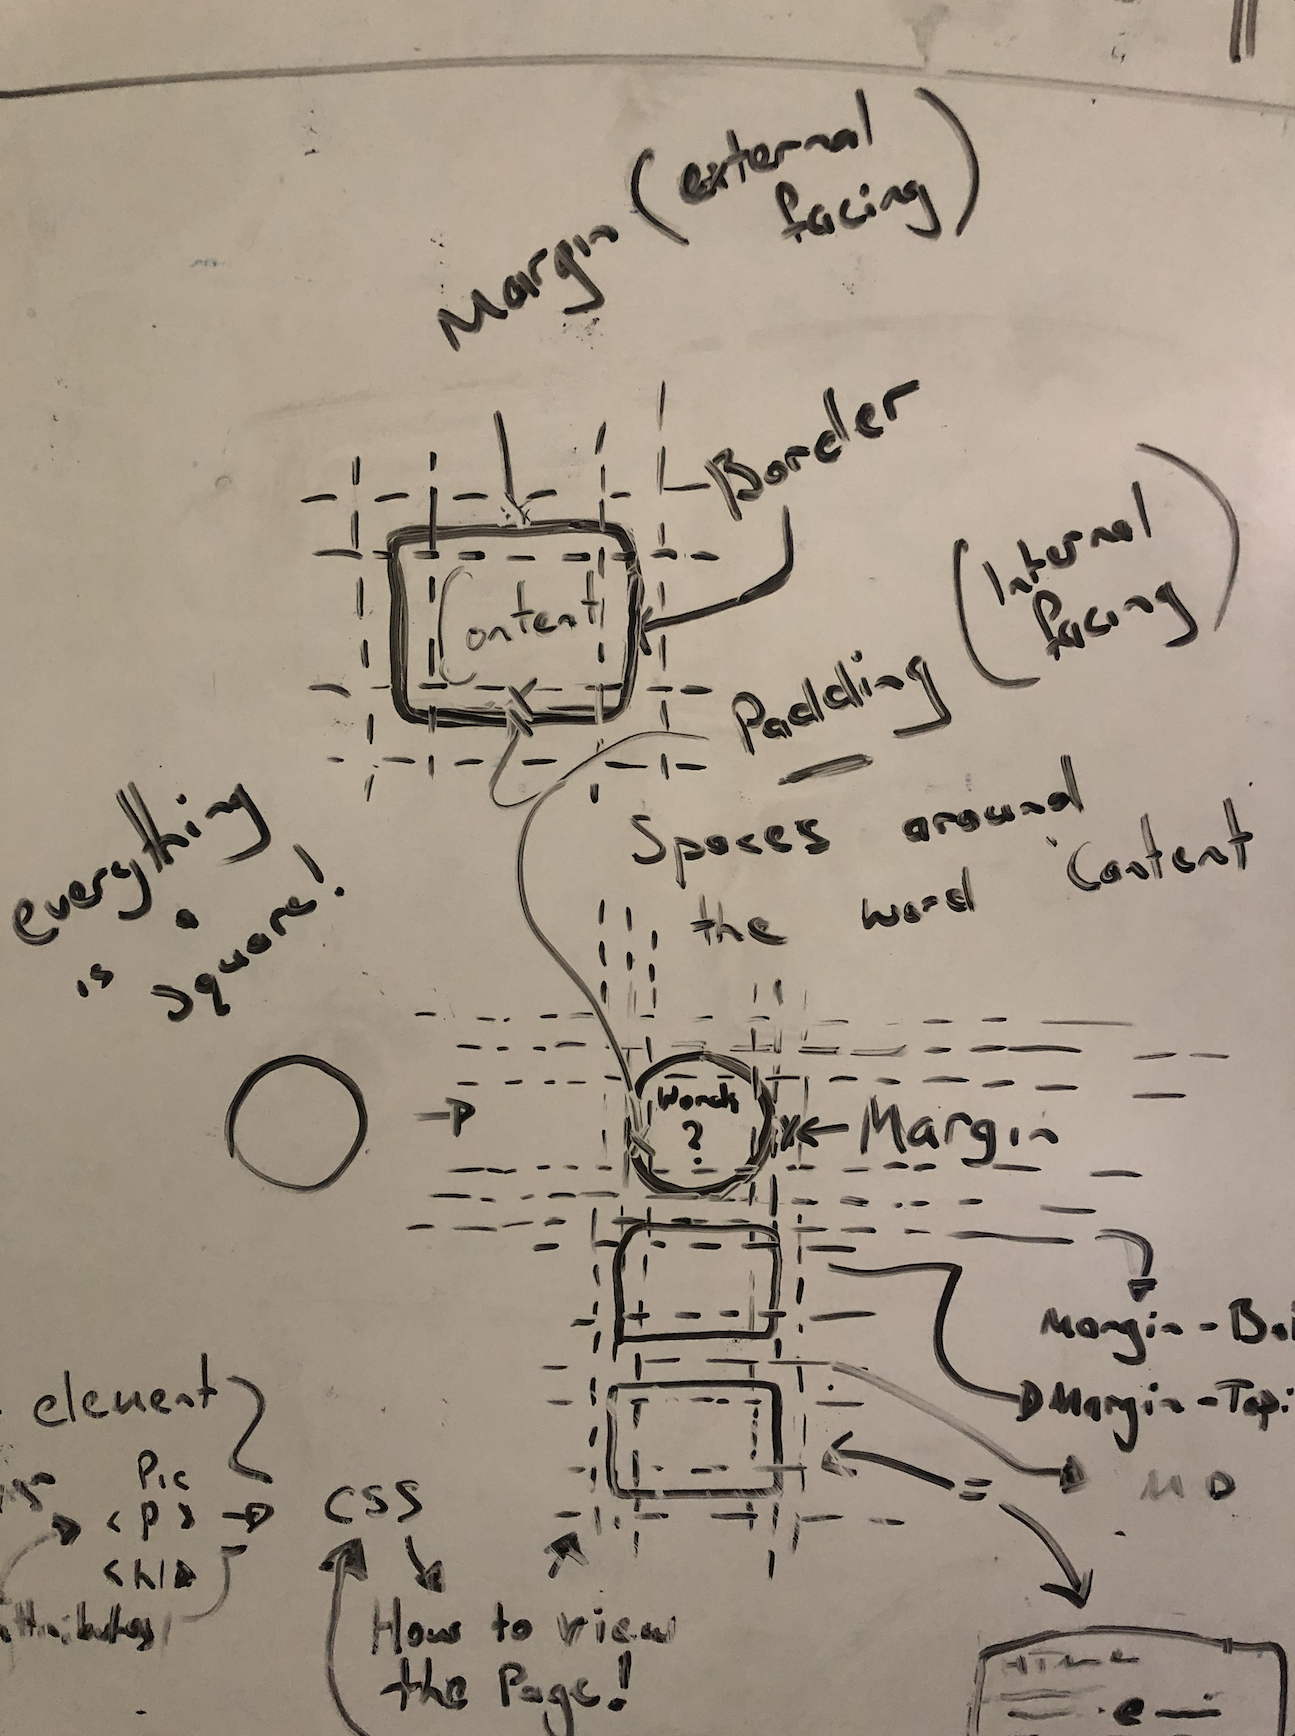 Margin (external
facing)
Border
Content
(Internal
facing)
Padding
Spaces around
the word Content
everything
is a
square!
Words
?
Margin
Margin-
Margin-Top
element
Pic
<P>
CSS
How to view
the Page!